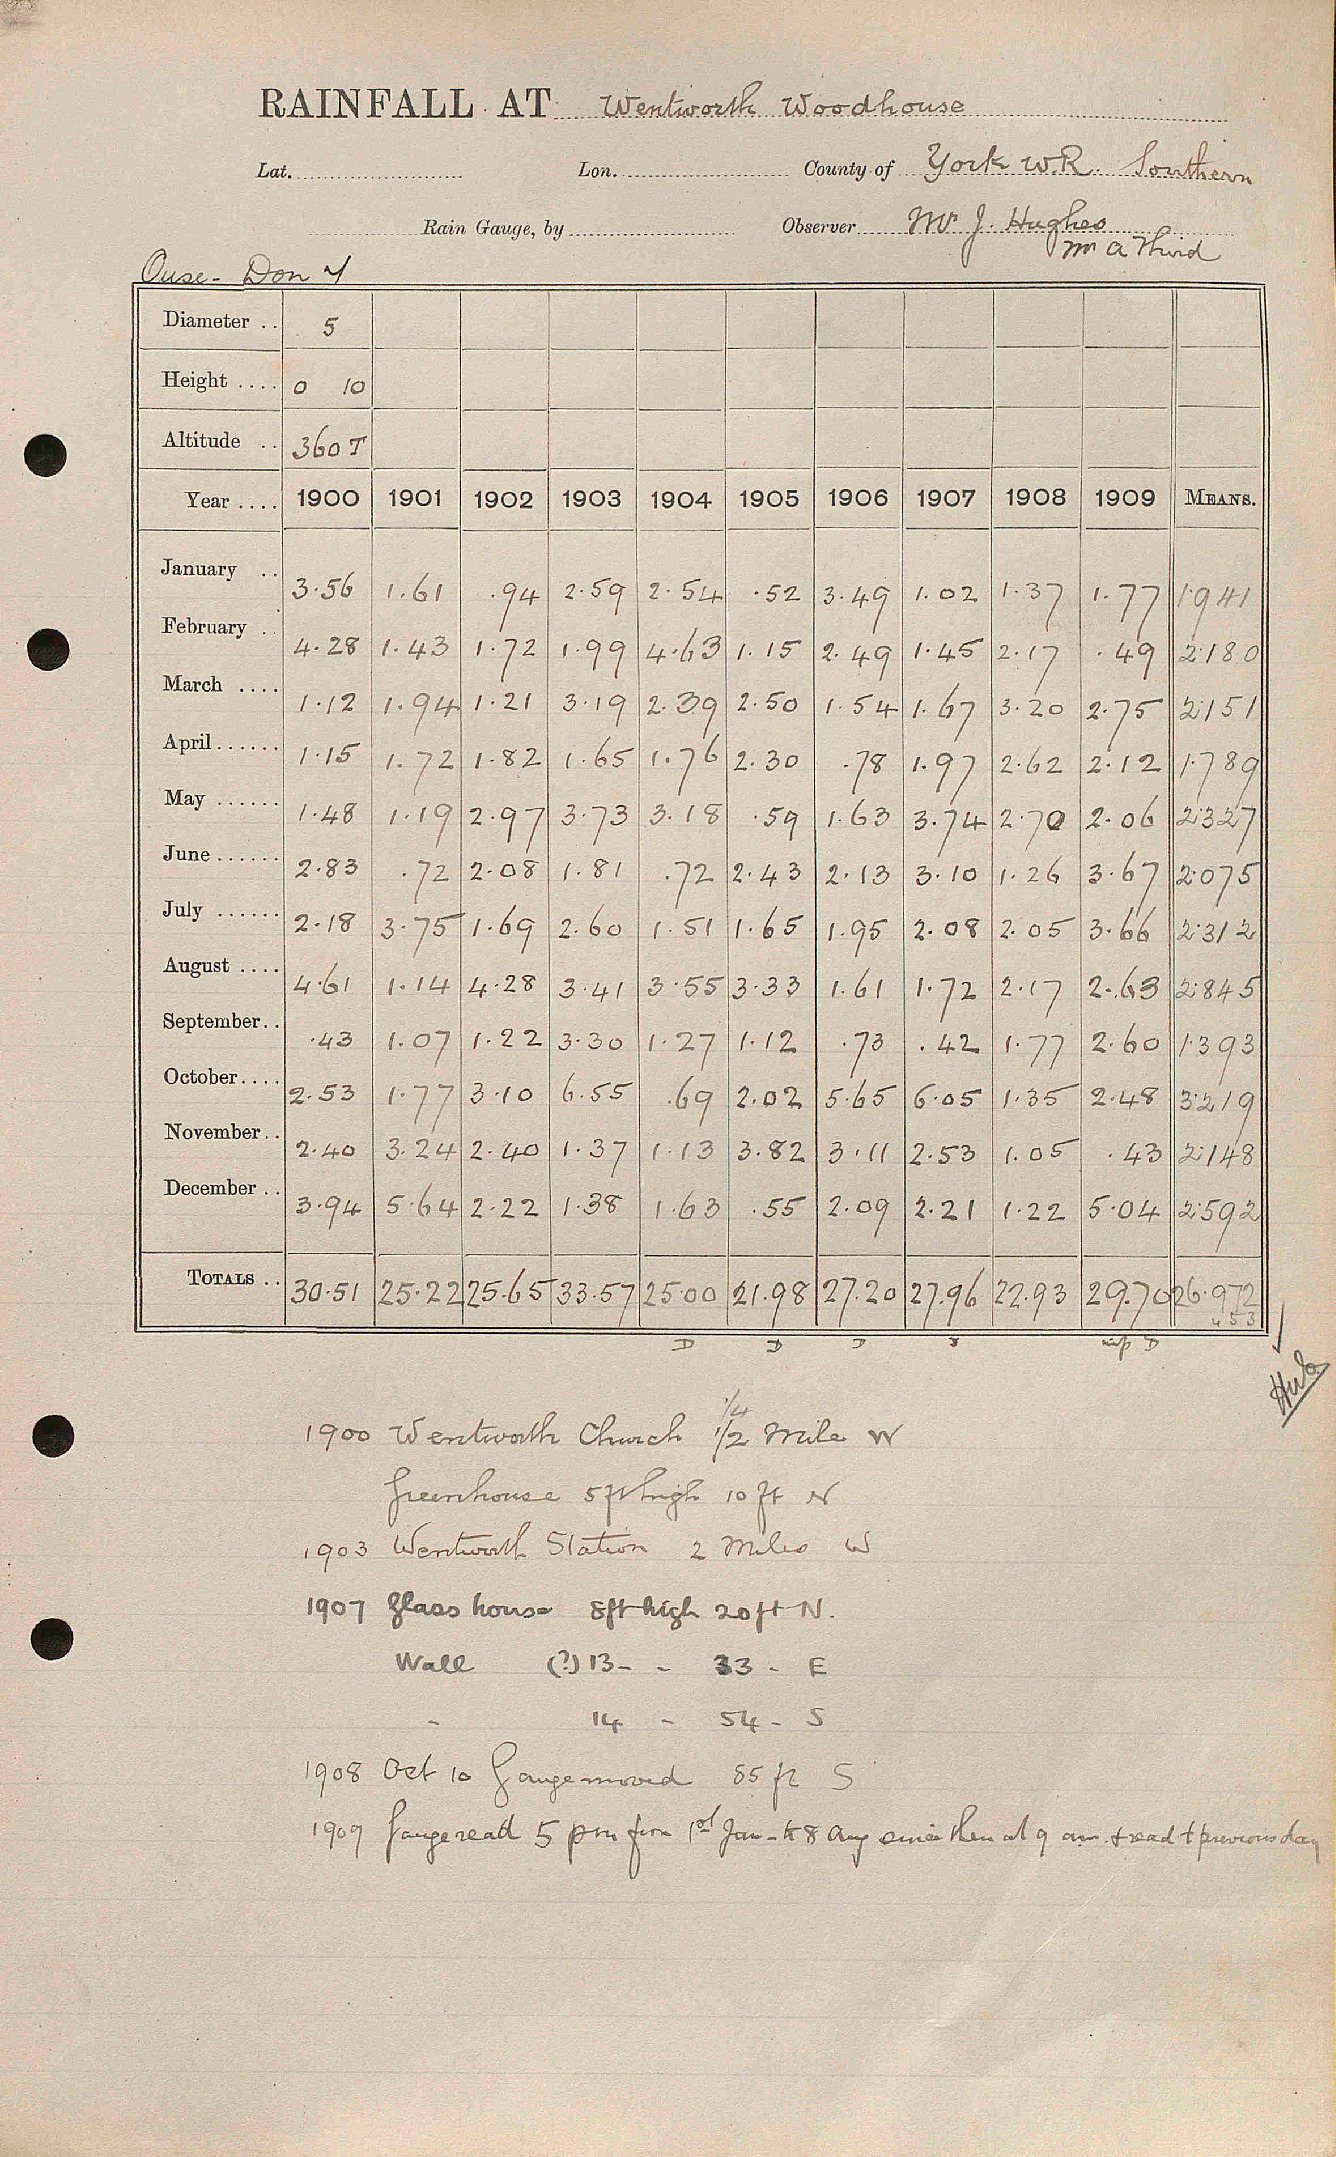 RAINFALL AT Wentworth Woodhouse
Lat. Lon. County of York W.R. Southern
Rain Gauge, by Observer Mr J. Hughes
Mr A Third
Ouse - Don
Diameter .. 5
Height .... 0 10
Altitude .. 360 T
Year .... 1900 1901 1902 1903 1904 1905 1906 1907 1908 1909 MEANS.
January .. 3.56 1.61 .94 2.59 2.54 .52 3.49 1.02 1.37 1.77 1.941
February .. 4.28 1.43 1.72 1.99 4.63 1.15 2.49 1.45 2.17 .49 2.180
March .... 1.12 1.94 1.21 3.19 2.39 2.50 1.54 1.67 3.20 2.75 2.151
April...... 1.15 1.72 1.82 1.65 1.76 2.30 .78 1.97 2.62 2.12 1.789
May ...... 1.48 1.19 2.97 3.73 3.18 .59 1.63 3.74 2.70 2.06 2.327
June...... 2.83 .72 2.08 1.81 .72 2.43 2.13 3.10 1.26 3.67 2.075
July ...... 2.18 3.75 1.69 2.60 1.51 1.65 1.95 2.08 2.05 3.66 2.312
August .... 4.61 1.14 4.28 3.41 3.55 3.33 1.61 1.72 2.17 2.63 2.845
September.. .43 1.07 1.22 3.30 1.27 1.12 .73 .42 1.77 2.60 1.393
October.... 2.53 1.77 3.10 6.55 .69 2.02 5.65 6.05 1.35 2.48 3.219
November.. 2.40 3.24 2.40 1.37 1.13 3.82 3.11 2.53 1.05 .43 2.148
December .. 3.94 5.64 2.22 1.38 1.63 .55 2.09 2.21 1.22 5.04 2.592
TOTALS .. 30.51 25.22 25.65 33.57 25.00 21.98 27.20 27.96 22.93 29.70 26.972
D D D D
1/4
1900 Wentworth Church 1/2 Mile W
Greenhouse 5 ft high 10 ft N
1903 Wentworth Station 2 Miles W
1907 Glass house 8ft high 20ft N.
Wall (?) 13 - - 33 - E
- 14 - 54 - S
1908 Oct 10 Gauge moved 85 ft S
1909 Gauge read 5 pm from 1st Jan - to 8 Aug since then at 9 am + read t previous day